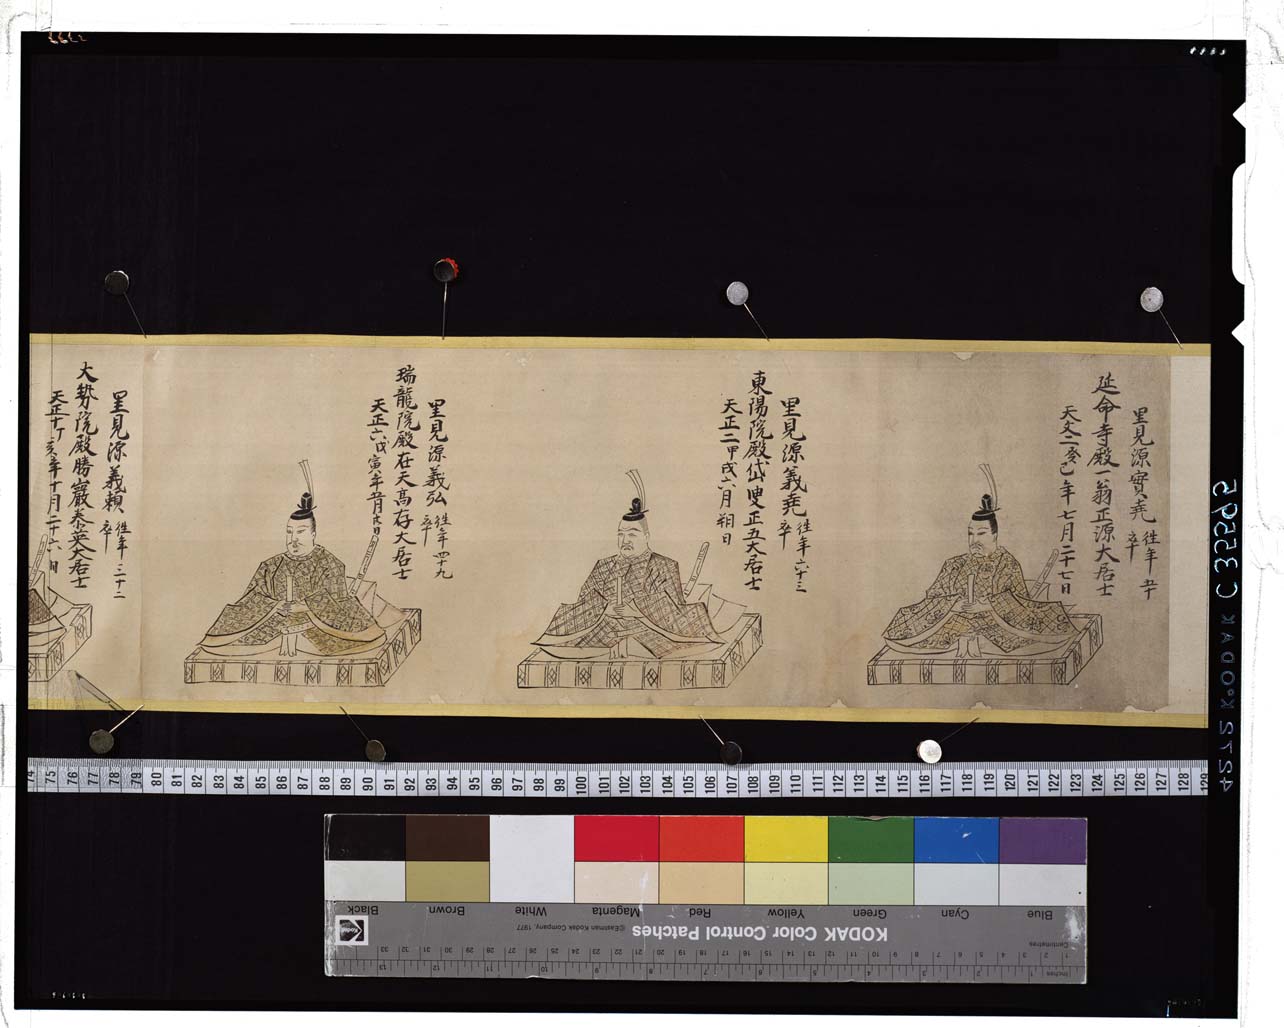 里見源實堯 往年五十
卒
延命寺殿一翁正源大居士
天文二癸巳年七月二十七日
里見源義堯 往年六十三
卒
東陽院殿岱叟正五大居士
天正二甲戌六月朔日
里見源義弘 往年四十九
卒
瑞龍院殿在天高存大居士
天正六戊寅年五月
里見源義頼 往年
卒
大勢院殿勝巖泰英大居士
天正十丁亥年十月二十六日
74 75 76 77 78 79 80 81 82 83 84 85 86 87 88 89 90 91 92 93 94 95 96 97 98 99 100 101 102 103 104 105 106 107 108 109 110 111 112 113 114 115 116 117 118 119 120 121 122 123 124 125 126 127 128 129
Blue Cyan Green Yellow Red Magenta White Brown Black
KODAK Color Control Patches ©Eastman Kodak Company, 1977
Kodak
Centimetres 1 2 3 4 5 6 7 8 9 10 11 12 13 14 15 16 17 18 19 20 21 22 23 24 25 26 27 28 29 30 31 32 33
Inches 1 2 3 4 5 6 7 8 9 10 11 12 13